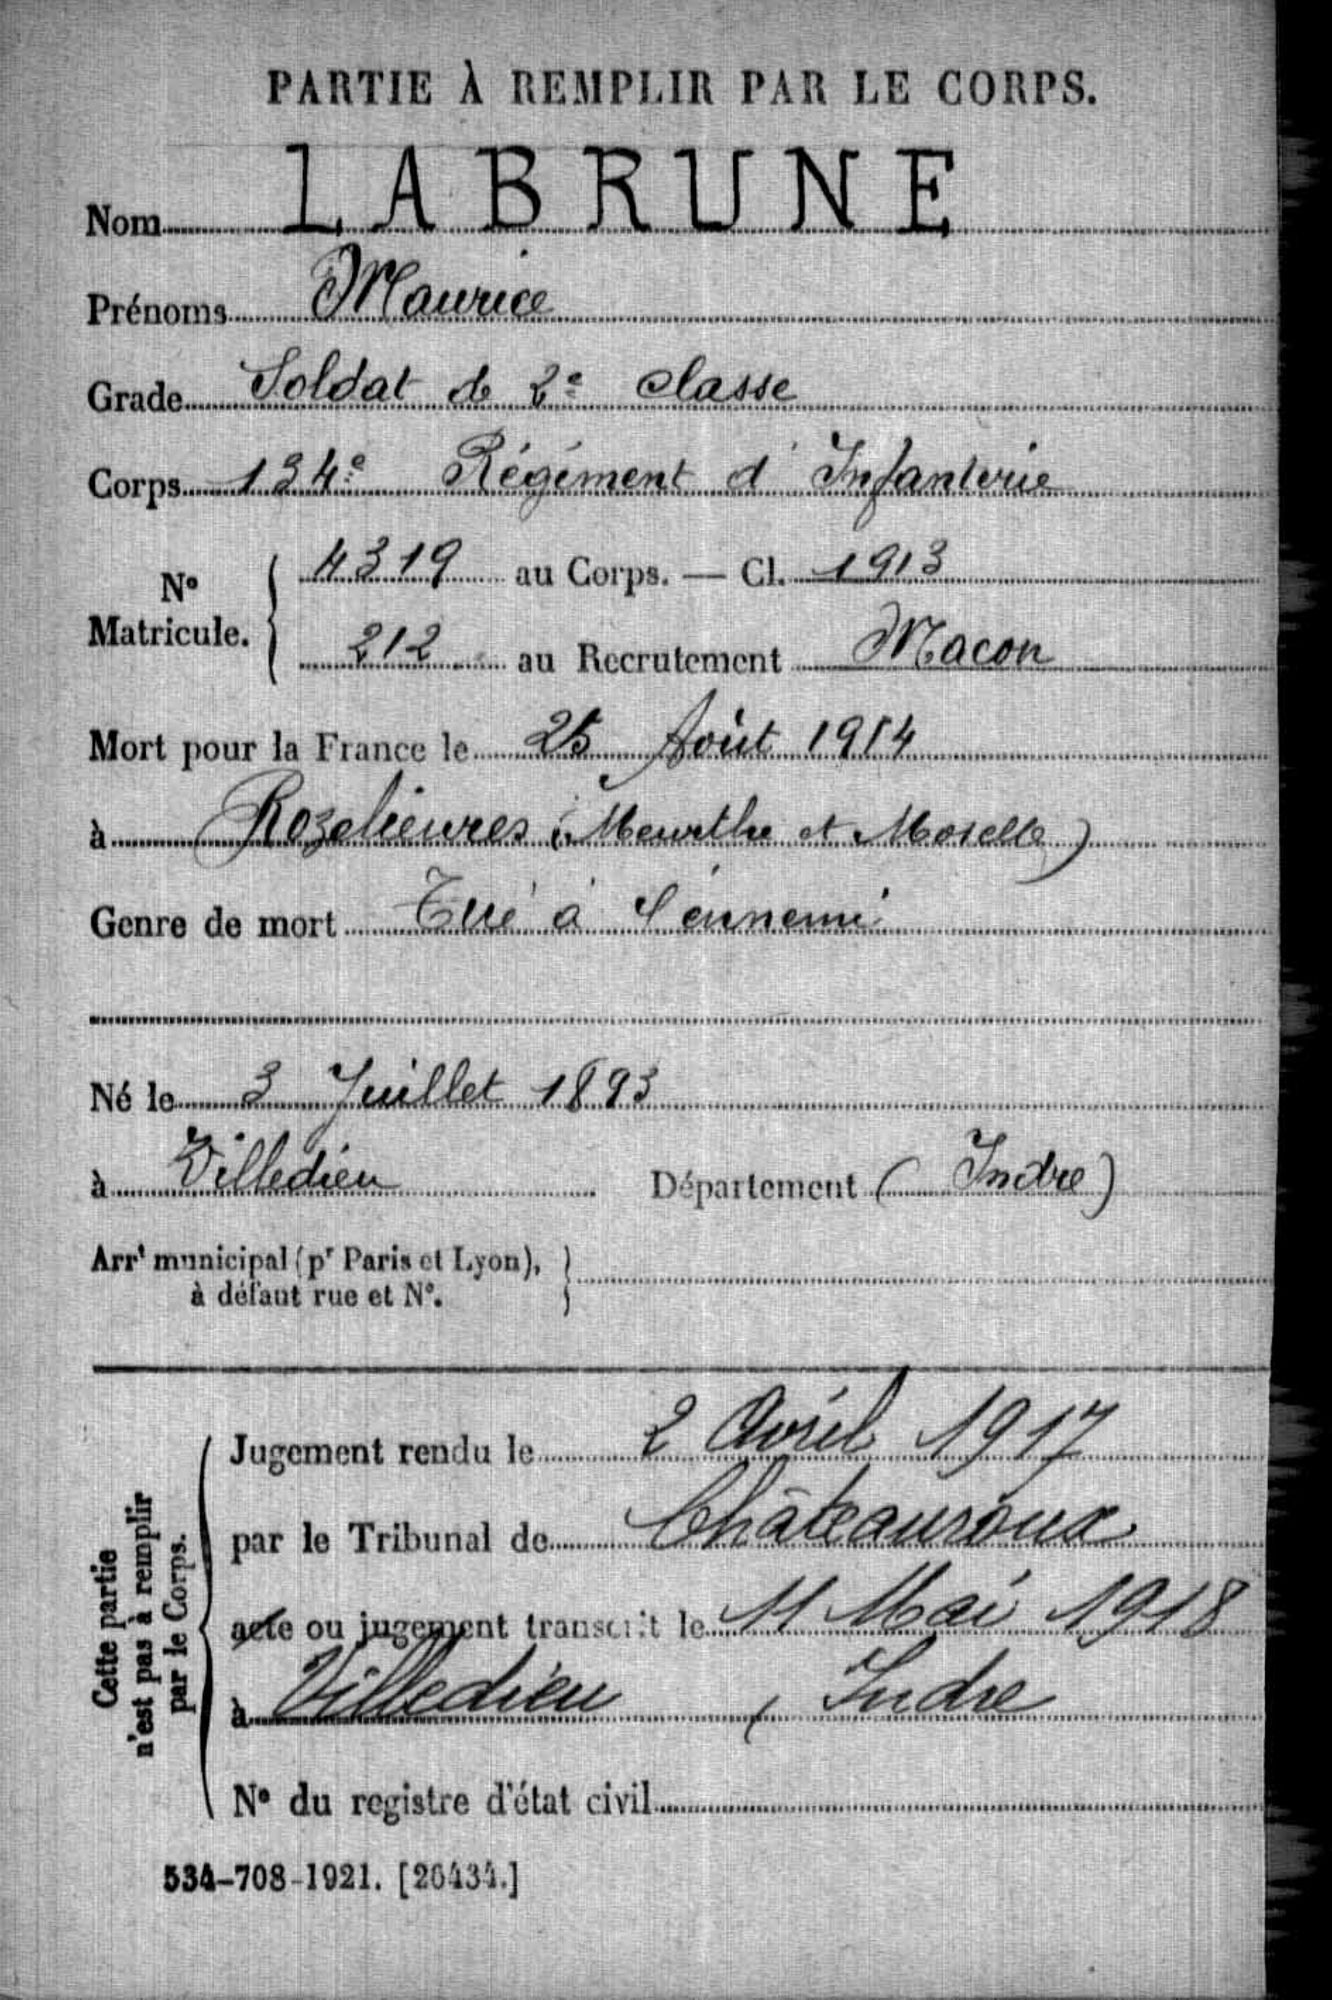 PARTIE À REMPLIR PAR LE CORPS.
Nom LABRUNE
Prénoms Maurice
Grade Soldat de 2e classe
Corps 134e Régiment d'Infanterie
4319 au Corps. — Cl. 1913
No
Matricule.
212 au Recrutement Macon
Mort pour la France le 25 Août 1914
à Rozelieures (Meurthe et Moselle)
Genre de mort Tué à l'ennemi
Né le 3 Juillet 1893
à Villedieu Département (Indre)
Arrt municipal (pr Paris et Lyon),
à défaut rue et No.
Cette partie
n'est pas à remplir
par le Corps.
Jugement rendu le 2 Avril 1917
par le Tribunal de Châteauroux
acte ou jugement transcrit le 11 Mai 1918
à Villedieu, Indre
No du registre d'état civil
534-708-1921. [26434.]